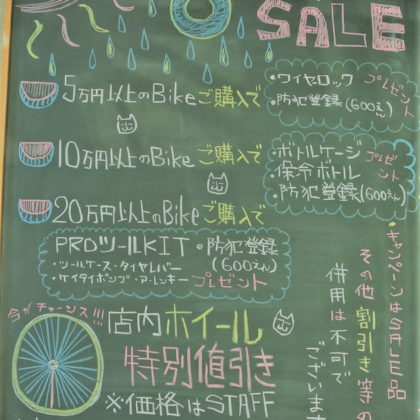 SALE
5万円以上のBikeご購入で
・ワイヤロック プレゼント
・防犯登録(600えん)
10万円以上のBikeご購入で
・ボトルケージ プレゼント
・保冷ボトル
・防犯登録(600えん)
20万円以上のBikeご購入で
PROツールKIT ・防犯登録
(600えん)
・ツールケース・タイヤレバー
・ケイタイポンプ・アーレンキー プレゼント
・キャンペーンはSALE品
その他割引き等の
併用は不可で
ございます
今がチャーンス!!!
店内ホイール
特別値引き
※価格はSTAFF